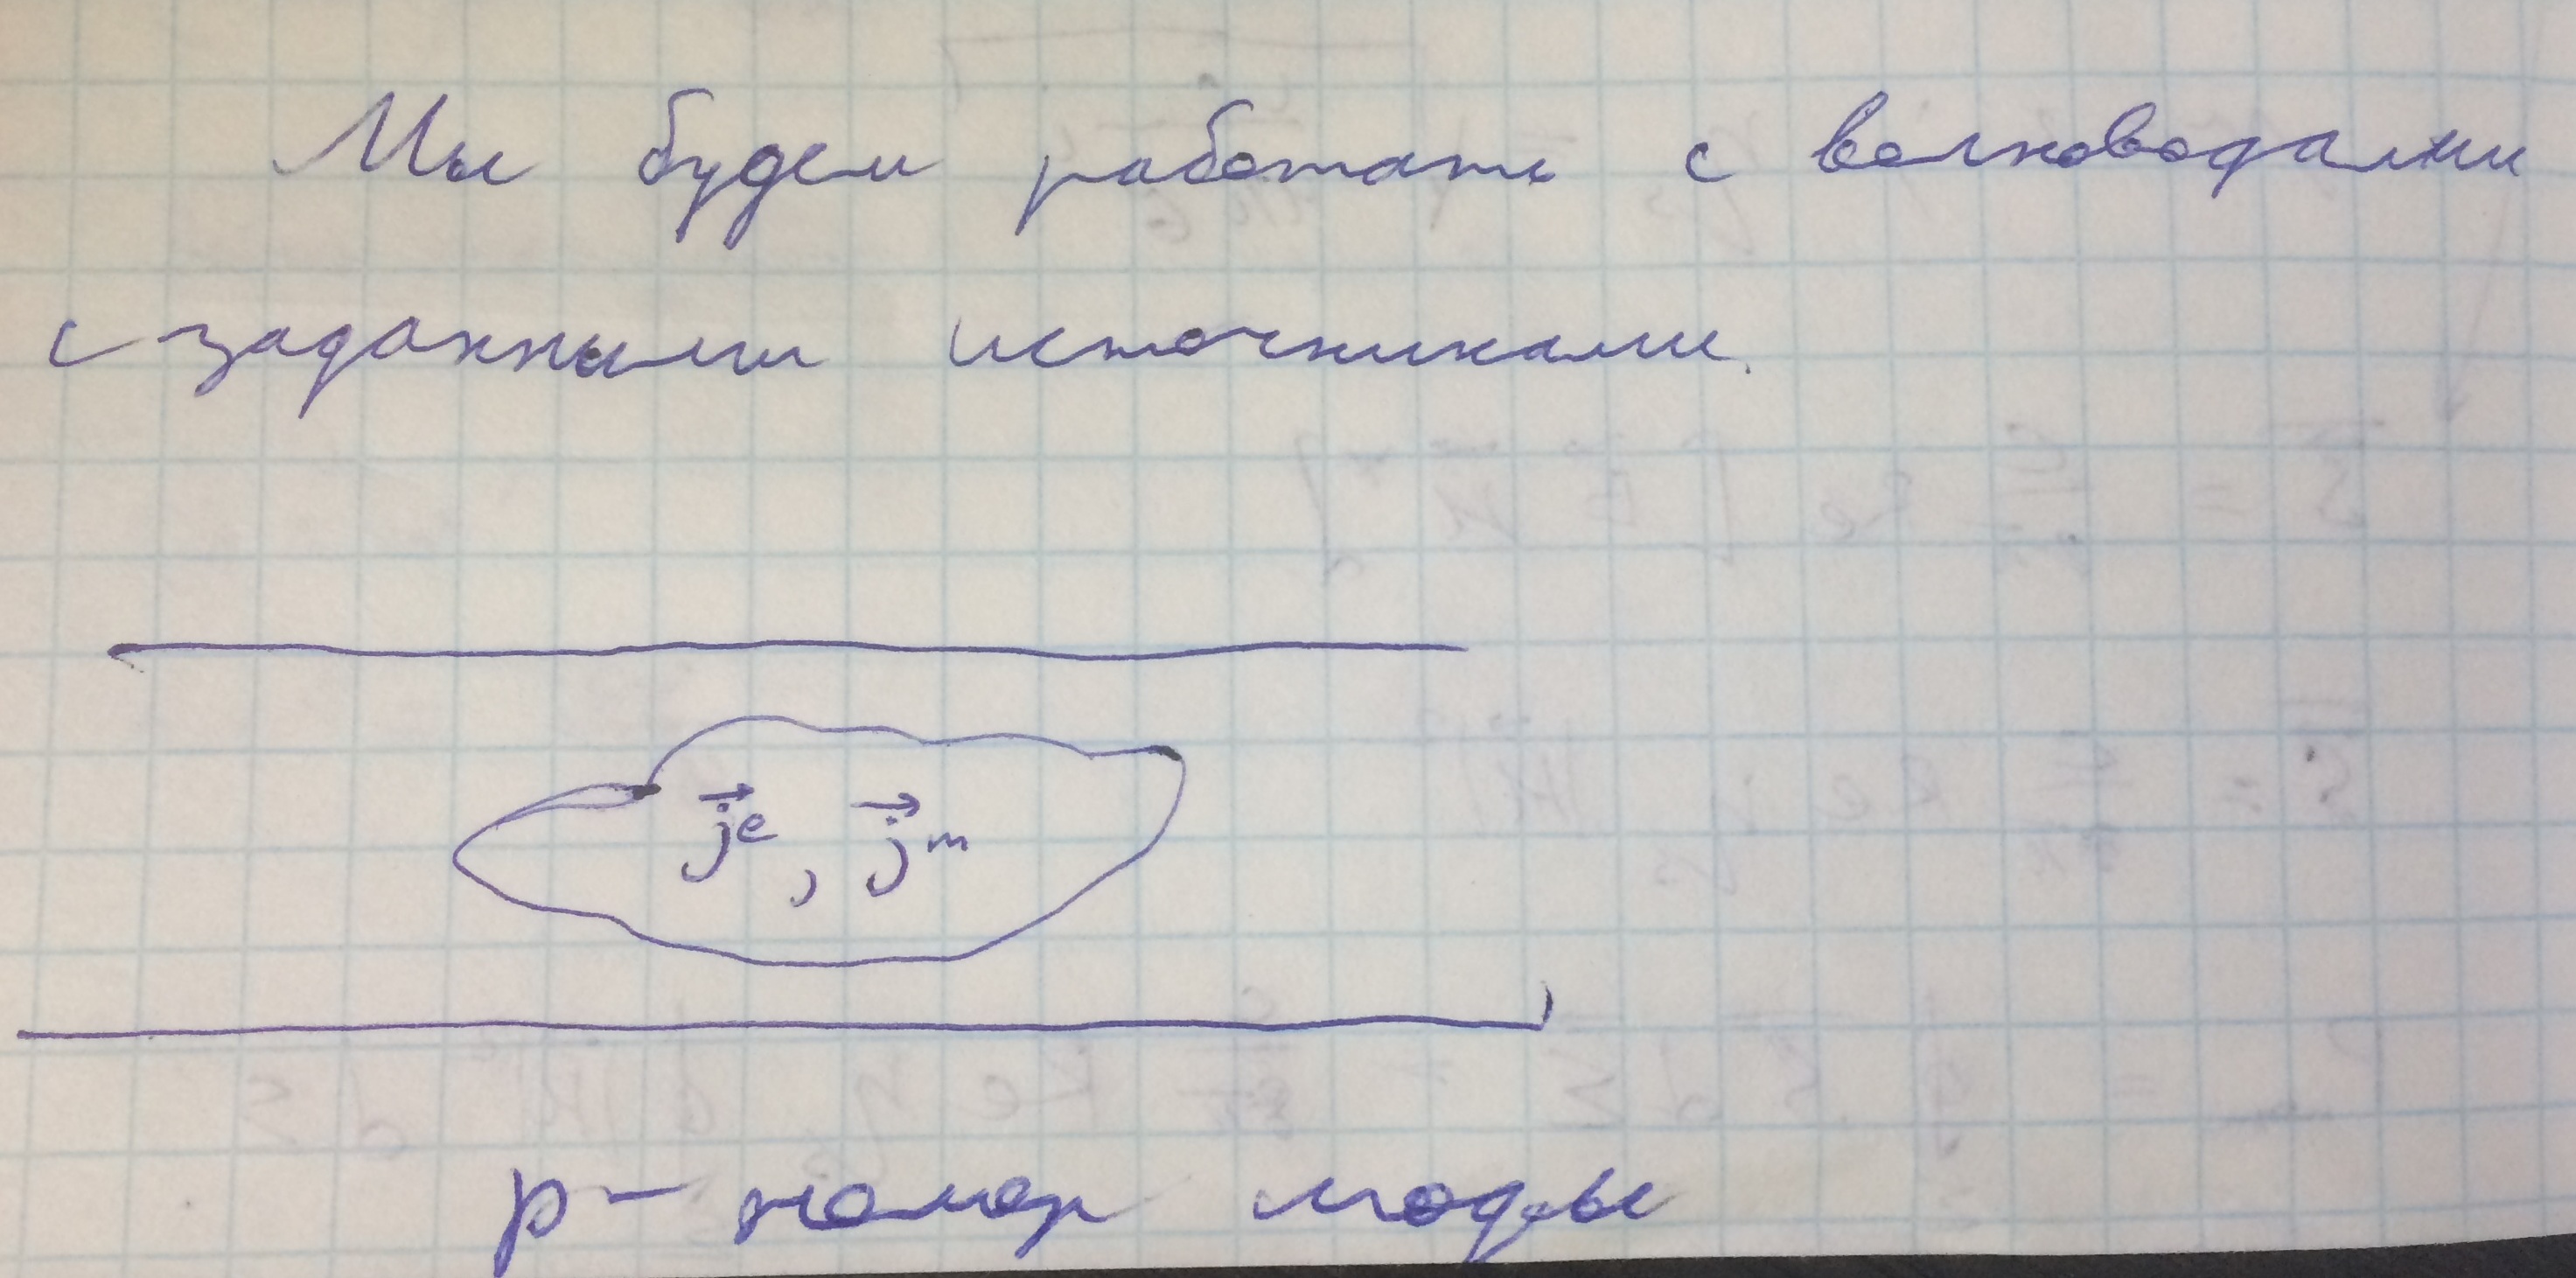 Мы будем работать с волноводами
с заданными источниками.
j⃗ᵉ, j⃗ᵐ
p – номер моды